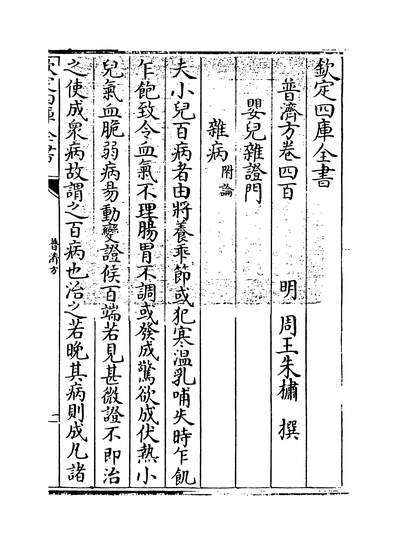 欽定四庫全書
普濟方卷四百
明 周王朱橚 撰
嬰兒雜證門
雜病附論
夫小兒百病者由將養乖節或犯寒溫乳哺失時乍飢
乍飽致令血氣不理腸胃不調或發成驚欲成伏熱小
兒氣血脆弱病易動變證候百端若見甚微證不即治
之使成衆病故謂之百病也治之若晚其病則成凡諸
欽定四庫全書
普濟方